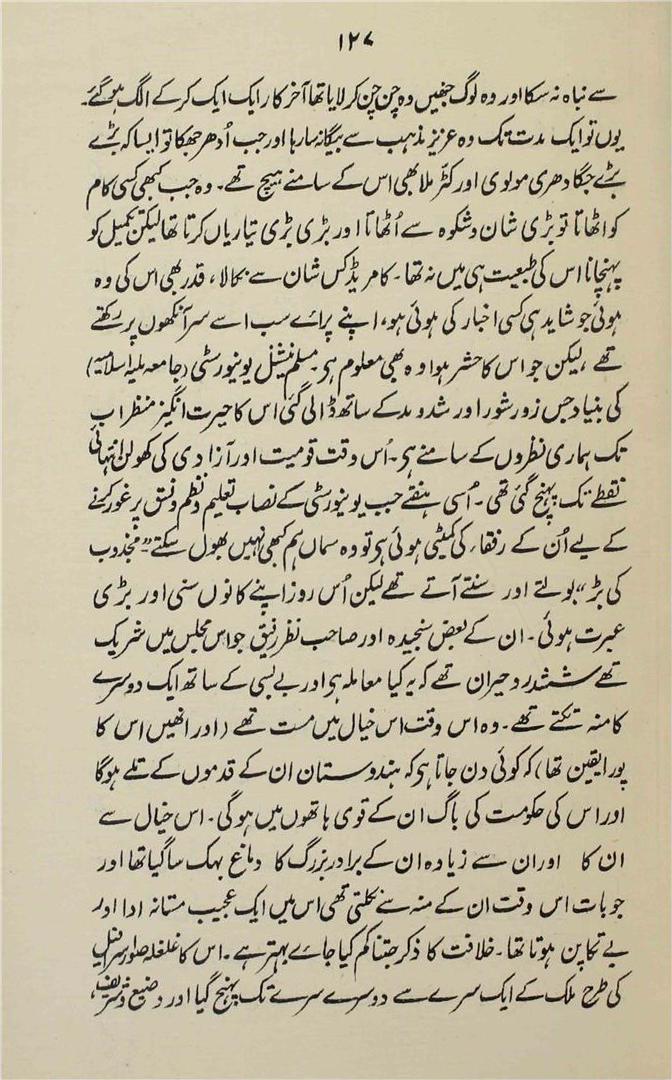 ۱۲۷
سے نباہ نہ سکا اور وہ لوگ جنھیں وہ چن چن کر لایا تھا آخر کار ایک ایک کر کے الگ ہو گئے۔
یوں تو ایک مدت تک وہ عزیز مذہب سے بیگانہ سا رہا اور جب اُدھر جھکا تو ایسا کہ بڑے
بڑے جگادھری مولوی اور کٹر ملا بھی اس کے سامنے ہیچ تھے۔ وہ جب کبھی کسی کام
کو اٹھاتا تو بڑی شان و شکوہ سے اُٹھاتا اور بڑی بڑی تیاریاں کرتا تھا لیکن تکمیل کو
پہنچانا اس کی طبیعت ہی میں نہ تھا۔ کامریڈ کس شان سے نکالا، قدر بھی اس کی وہ
ہوئی جو شاید ہی کسی اخبار کی ہوئی ہو، اپنے پرائے سب اسے سر آنکھوں پر رکھتے
تھے، لیکن جو اس کا حشر ہوا وہ بھی معلوم ہی۔ مسلم نیشنل یونیورسٹی (جامعہ ملیہ اسلامیہ)
کی بنیاد جس زور شور اور شد و مد کے ساتھ ڈالی گئی اس کا حیرت انگیز منظر اب
تک ہماری نظروں کے سامنے ہی۔ اُس وقت قومیت اور آزادی کی کھولن انتہائی
نقطے تک پہنچ گئی تھی۔ اُسی ہفتے جب یونیورسٹی کے نصاب تعلیم و نظم و نسق پر غور کرنے
کے لیے اُن کے رفقاء کی کمیٹی ہوئی ہی تو وہ سماں ہم کبھی نہیں بھول سکتے۔ "مجذوب
کی بڑ" بولتے اور سنتے آتے تھے لیکن اُس روز اپنے کانوں سنی اور بڑی
عبرت ہوئی۔ ان کے بعض سنجیدہ اور صاحب نظر رفیق جو اس مجلس میں شریک
تھے ششدر و حیران تھے کہ یہ کیا معاملہ ہی اور بے بسی کے ساتھ ایک دوسرے
کا منہ تکتے تھے۔ وہ اس وقت اس خیال میں مست تھے (اور انھیں اس کا
پورا یقین تھا) کہ کوئی دن جاتا ہی کہ ہندوستان ان کے قدموں کے تلے ہوگا
اور اس کی حکومت کی باگ ان کے قوی ہاتھوں میں ہوگی۔ اس خیال سے
ان کا اور ان سے زیادہ ان کے برادر بزرگ کا دماغ بہک سا گیا تھا اور
جو بات اس وقت ان کے منہ سے نکلتی تھی اس میں ایک عجیب مستانہ ادا اور
بے تکا پن ہوتا تھا۔ خلافت کا ذکر جتنا کم کیا جائے بہتر ہے۔ اس کا غلغلہ صور اسرافیل
کی طرح ملک کے ایک سرے سے دوسرے سرے تک پہنچ گیا اور وضیع و شریف،